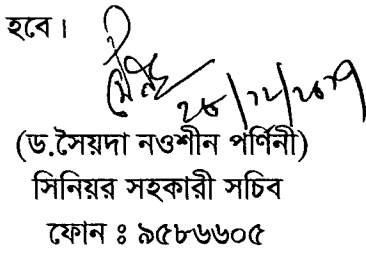 হবে।
(ড.সৈয়দা নওশীন পর্ণিনী)
সিনিয়র সহকারী সচিব
ফোন ঃ ৯৫৮৬৬০৫